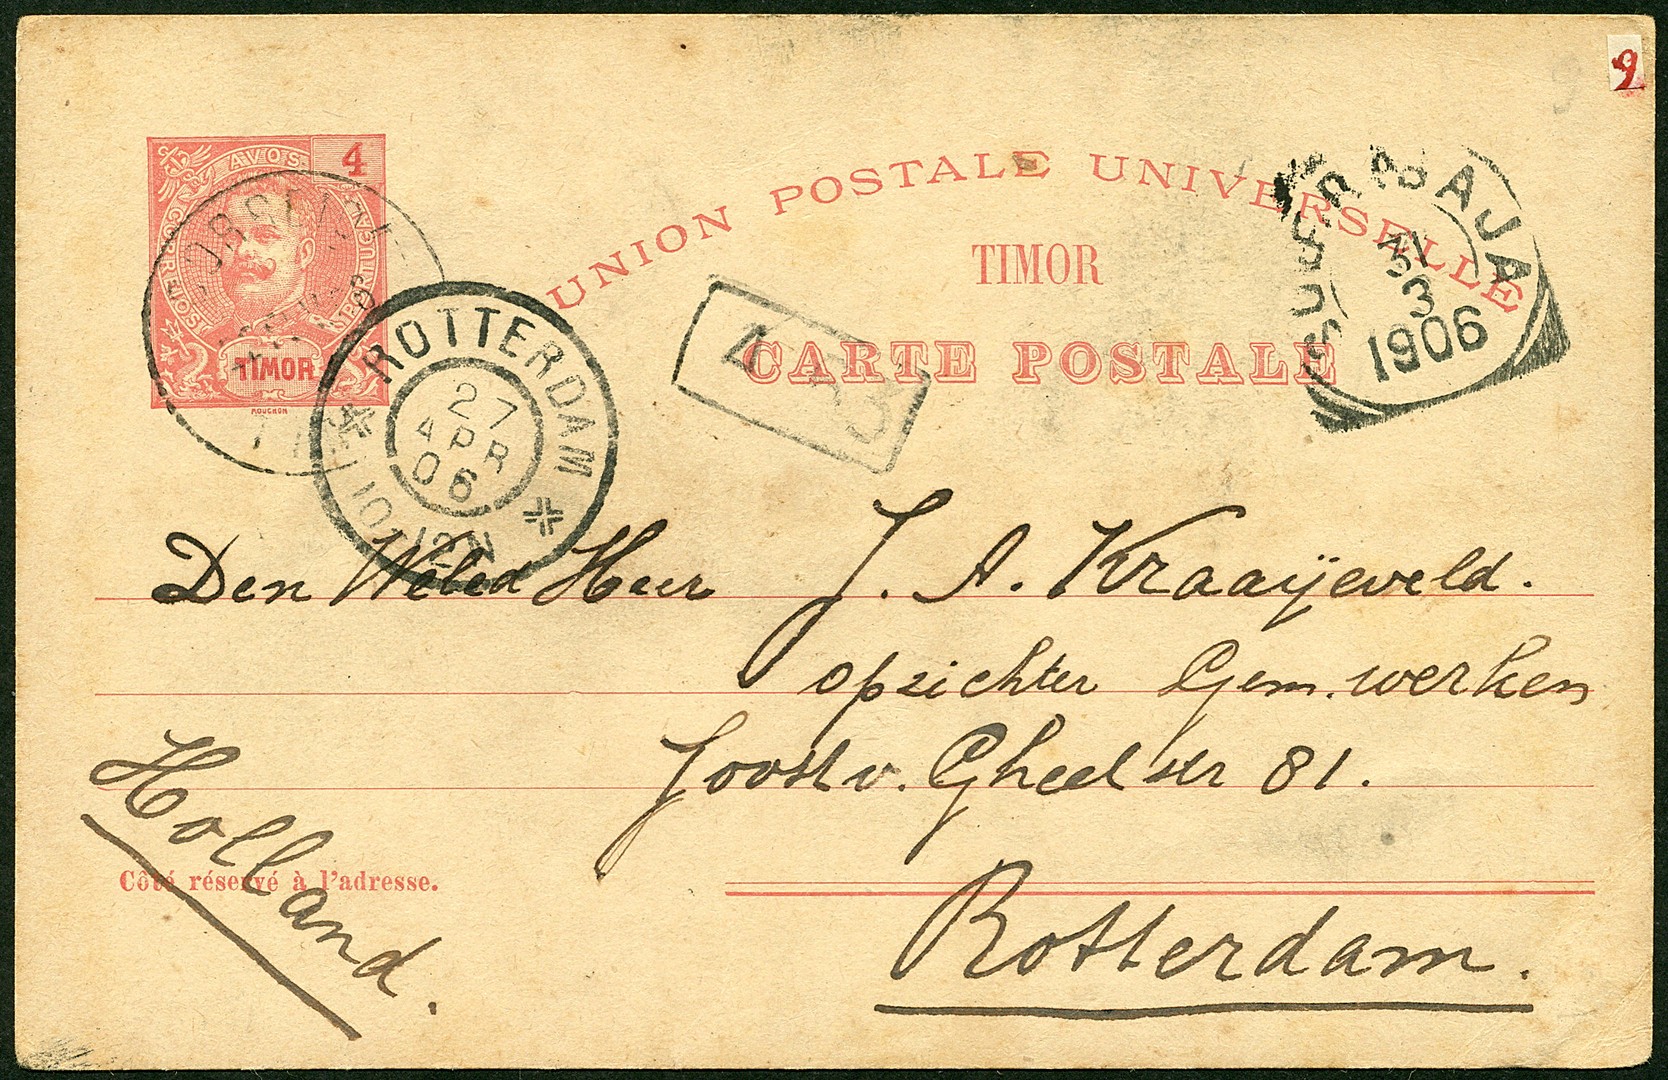 9
AVOS 4
CORREIOS
PORTUGAL
TIMOR
MOUCHON
UNION POSTALE UNIVERSELLE
TIMOR
CARTE POSTALE
SOERABAJA
3
1906
ROTTERDAM
27
APR
06
10-12N
Den Weled Heer J. A. Kraaijeveld.
opzichter Gem. werken
Joost v. Gheelstr 81.
Rotterdam.
Holland.
Côté réservé à l'adresse.